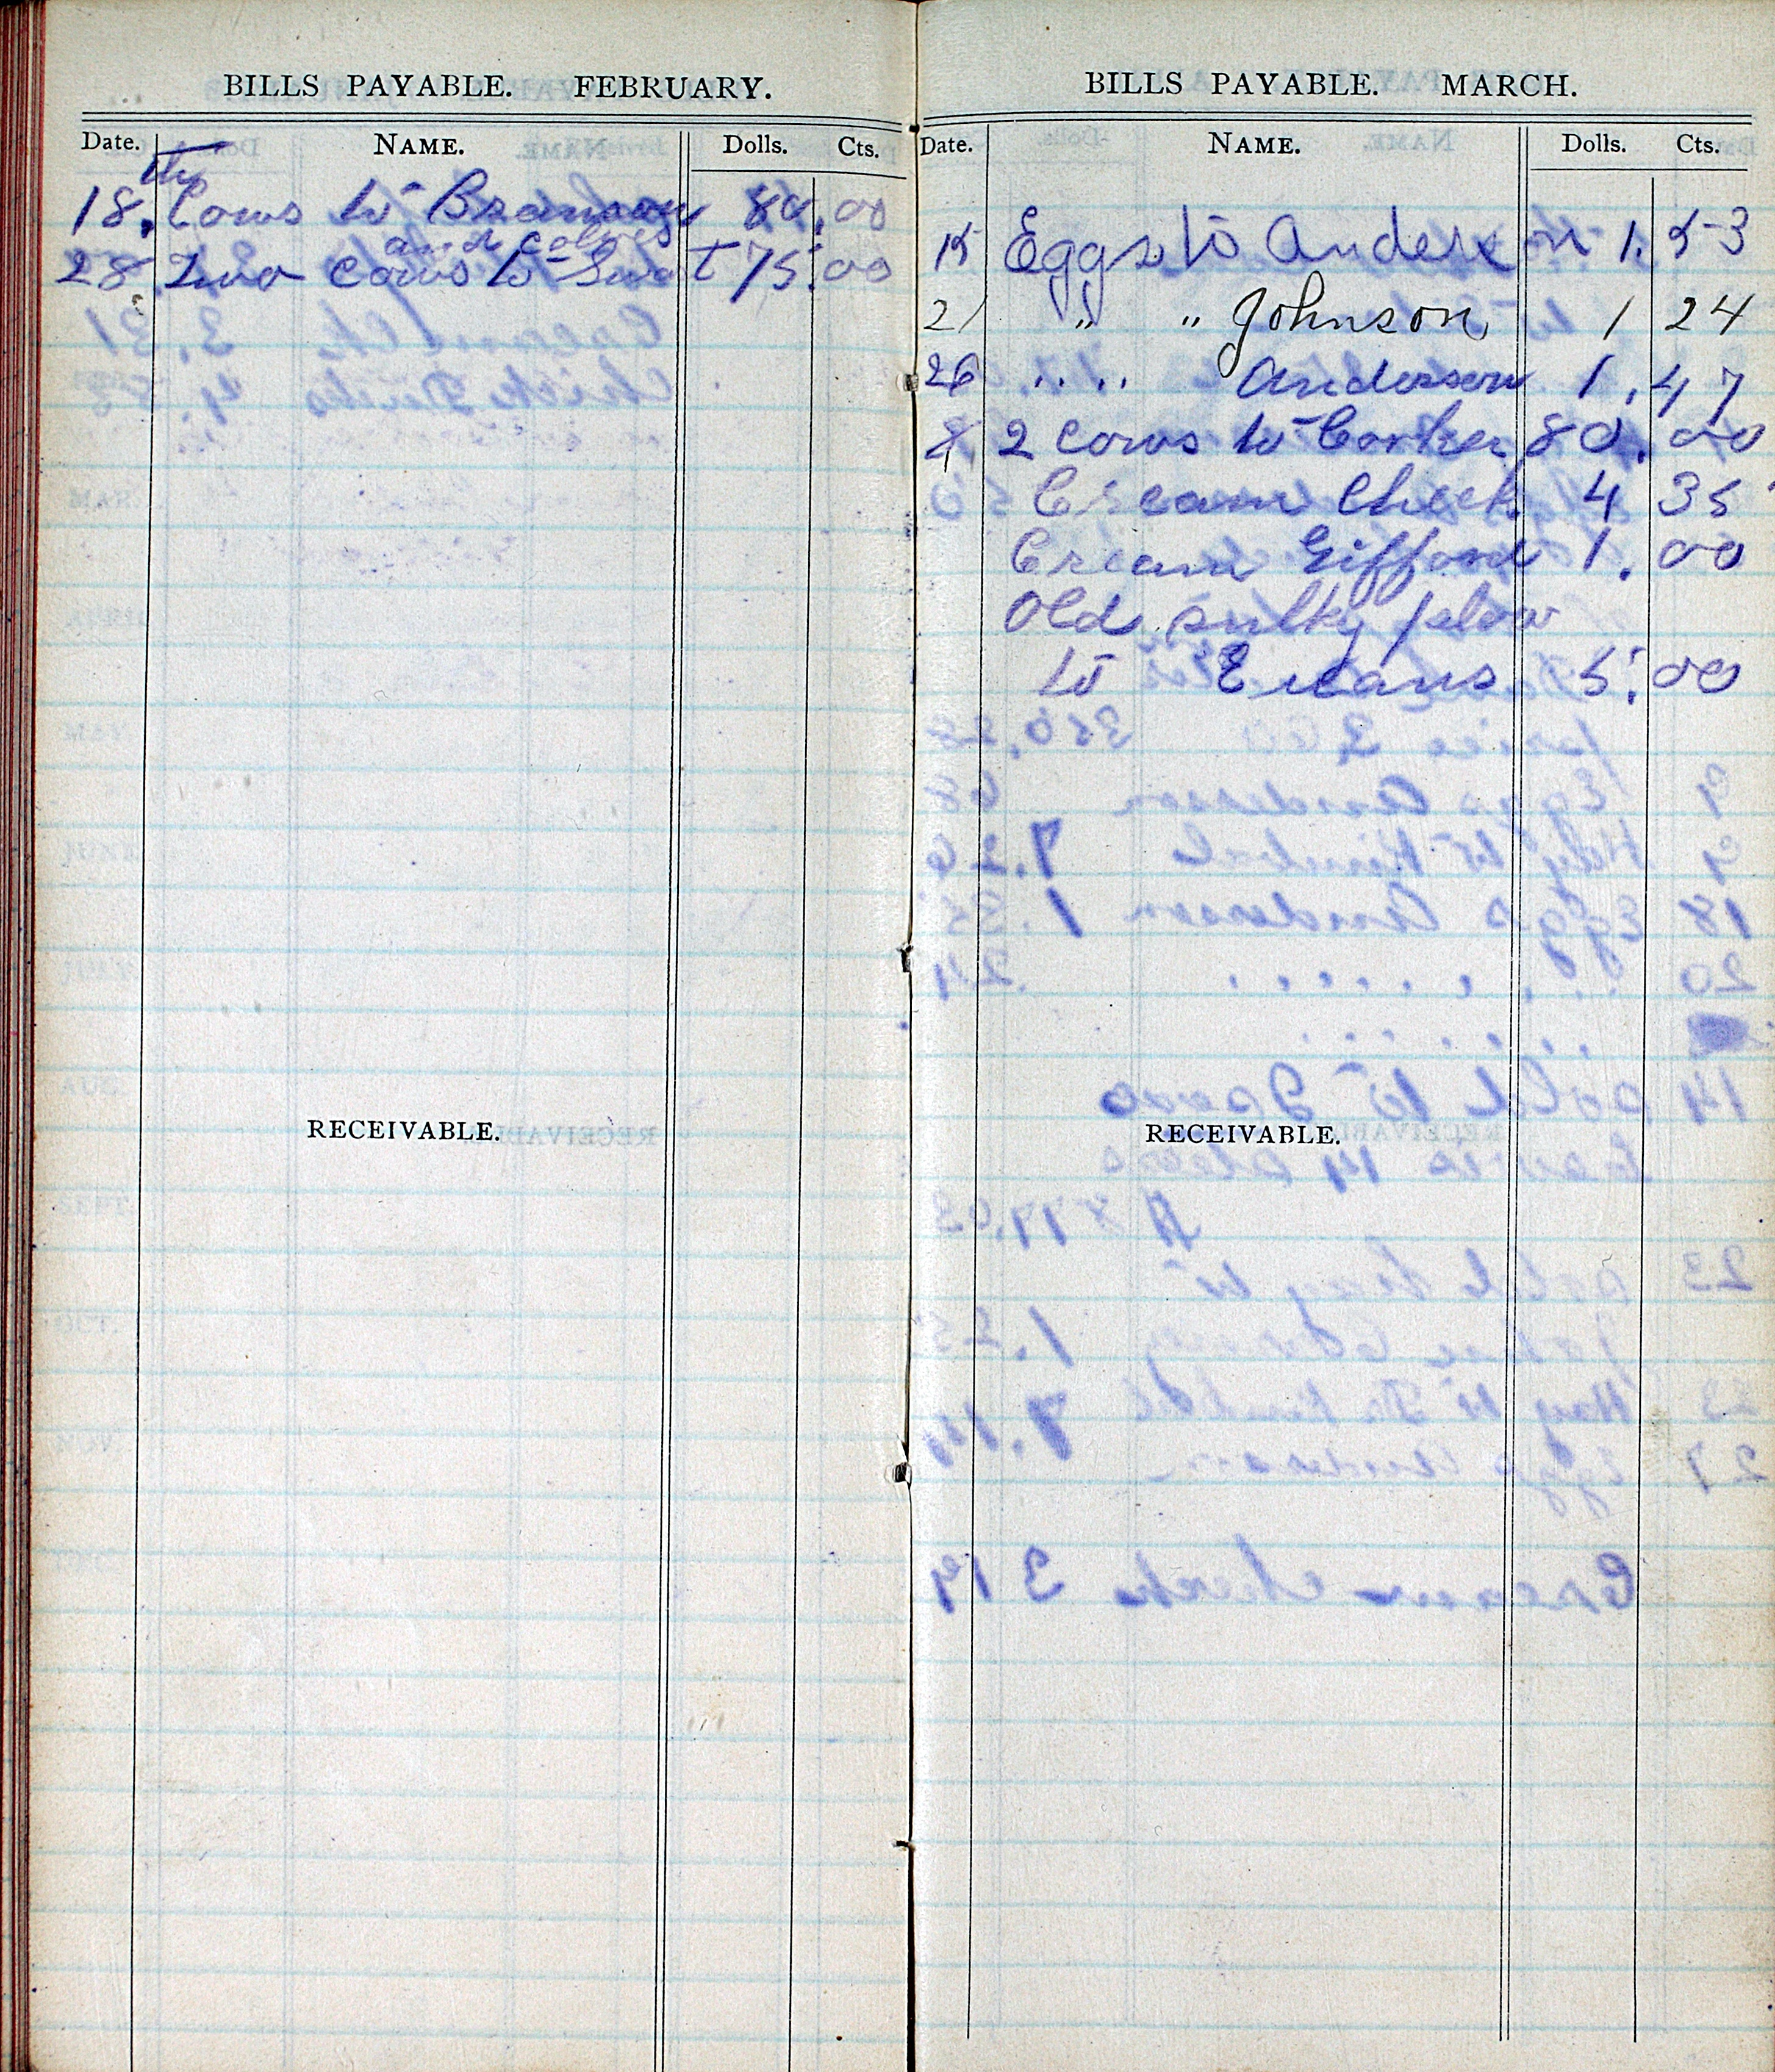 BILLS PAYABLE. FEBRUARY.
Date. NAME. Dolls. Cts.
th
18. Cows to Branson 80.00
and calves
28 Two cows to Swat 75.00
RECEIVABLE.
BILLS PAYABLE. MARCH.
Date. NAME. Dolls. Cts.
15 Eggs to Anderson 1.53
21 " " Johnson 1 24
26 " " Anderson 1.47
2 cows to Corker 80.00
Cream Check 4 35
Cream Gifford 1.00
Old sulky plow
to Evans 5.00
RECEIVABLE.